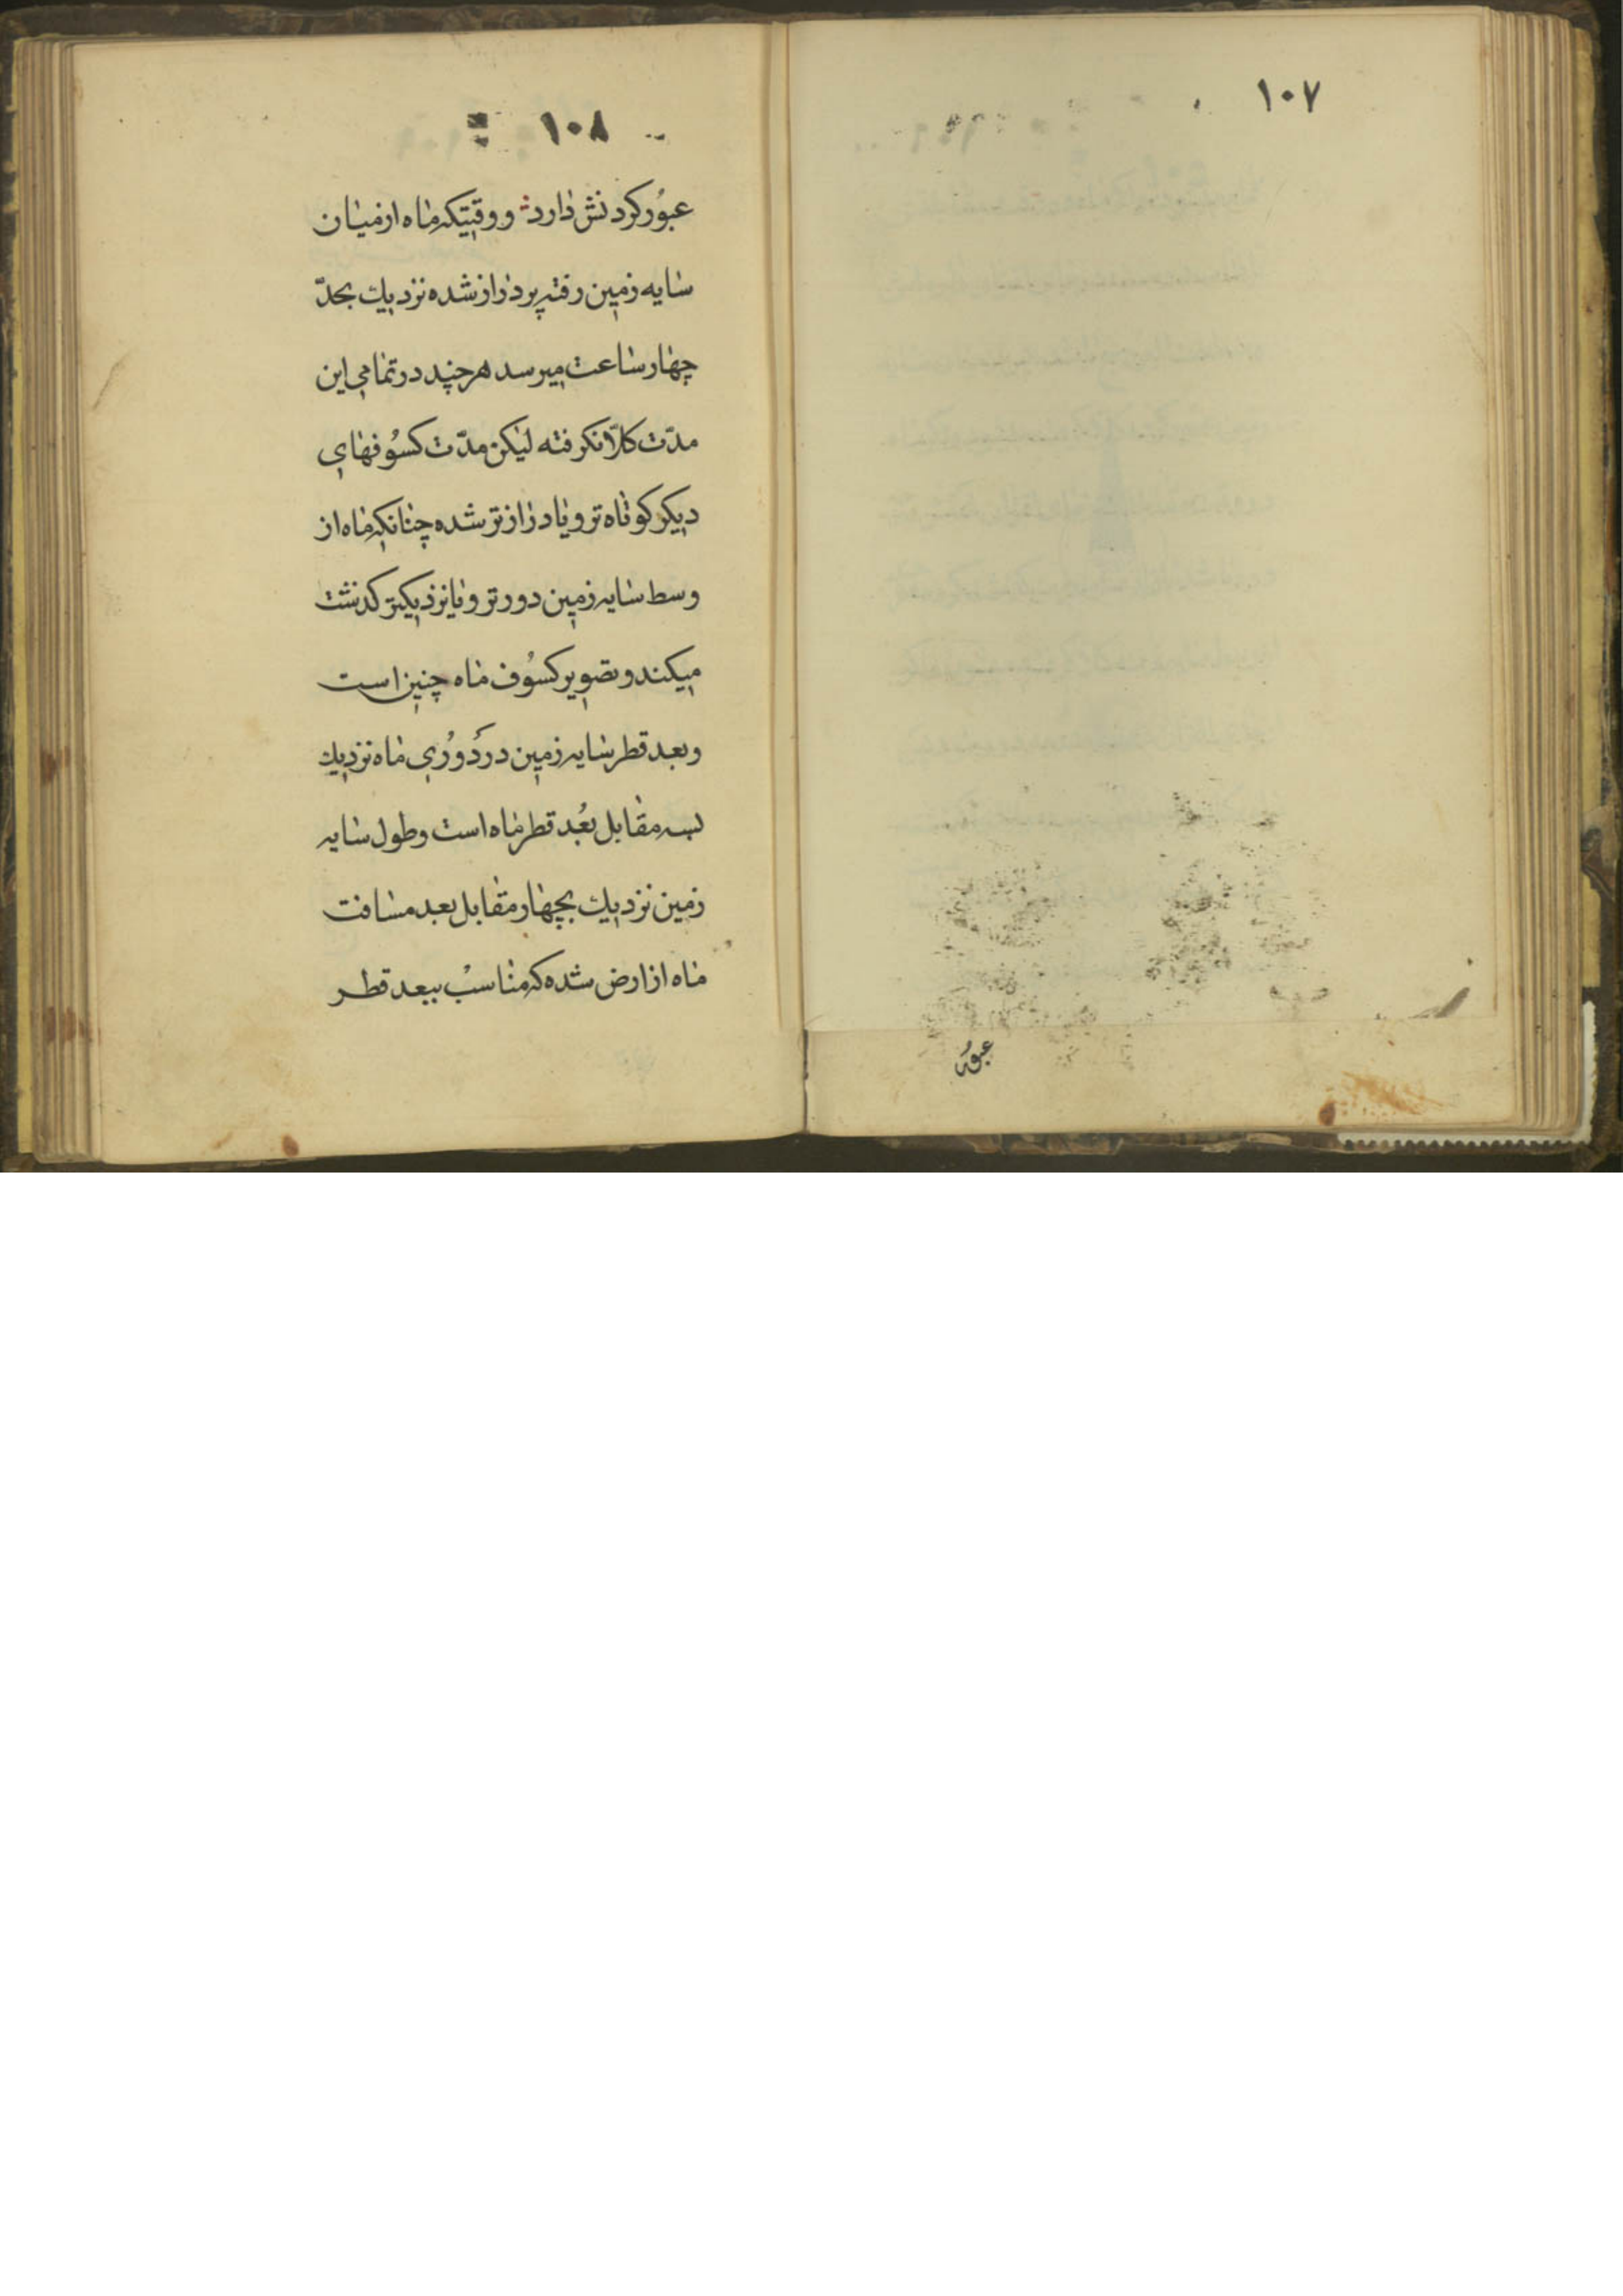 ۱۰۷
عبور
۱۰۸
عبُور کردنش دارد و وقتیکه ماه از میان
سایه زمین رفته پر دراز شده نزدیك بحدّ
چهار ساعت میرسد هرچند در تمامی این
مدّت کلاّ نکرفته لیکن مدّت کسُوفهای
دیکر کوتاه تر و یا دراز تر شده چنانکه ماه از
وسط سایه زمین دورتر و یا نزدیکتر کذشت
میکند و تصویر کسُوف ماه چنین است
وبعد قطر سایه زمین در دُورُی ماه نزدیك
بسه مقابل بُعد قطر ماه است و طول سایه
زمین نزدیك بچهار مقابل بعد مسافت
ماه از ارض شده که مناسب ببعد قطر